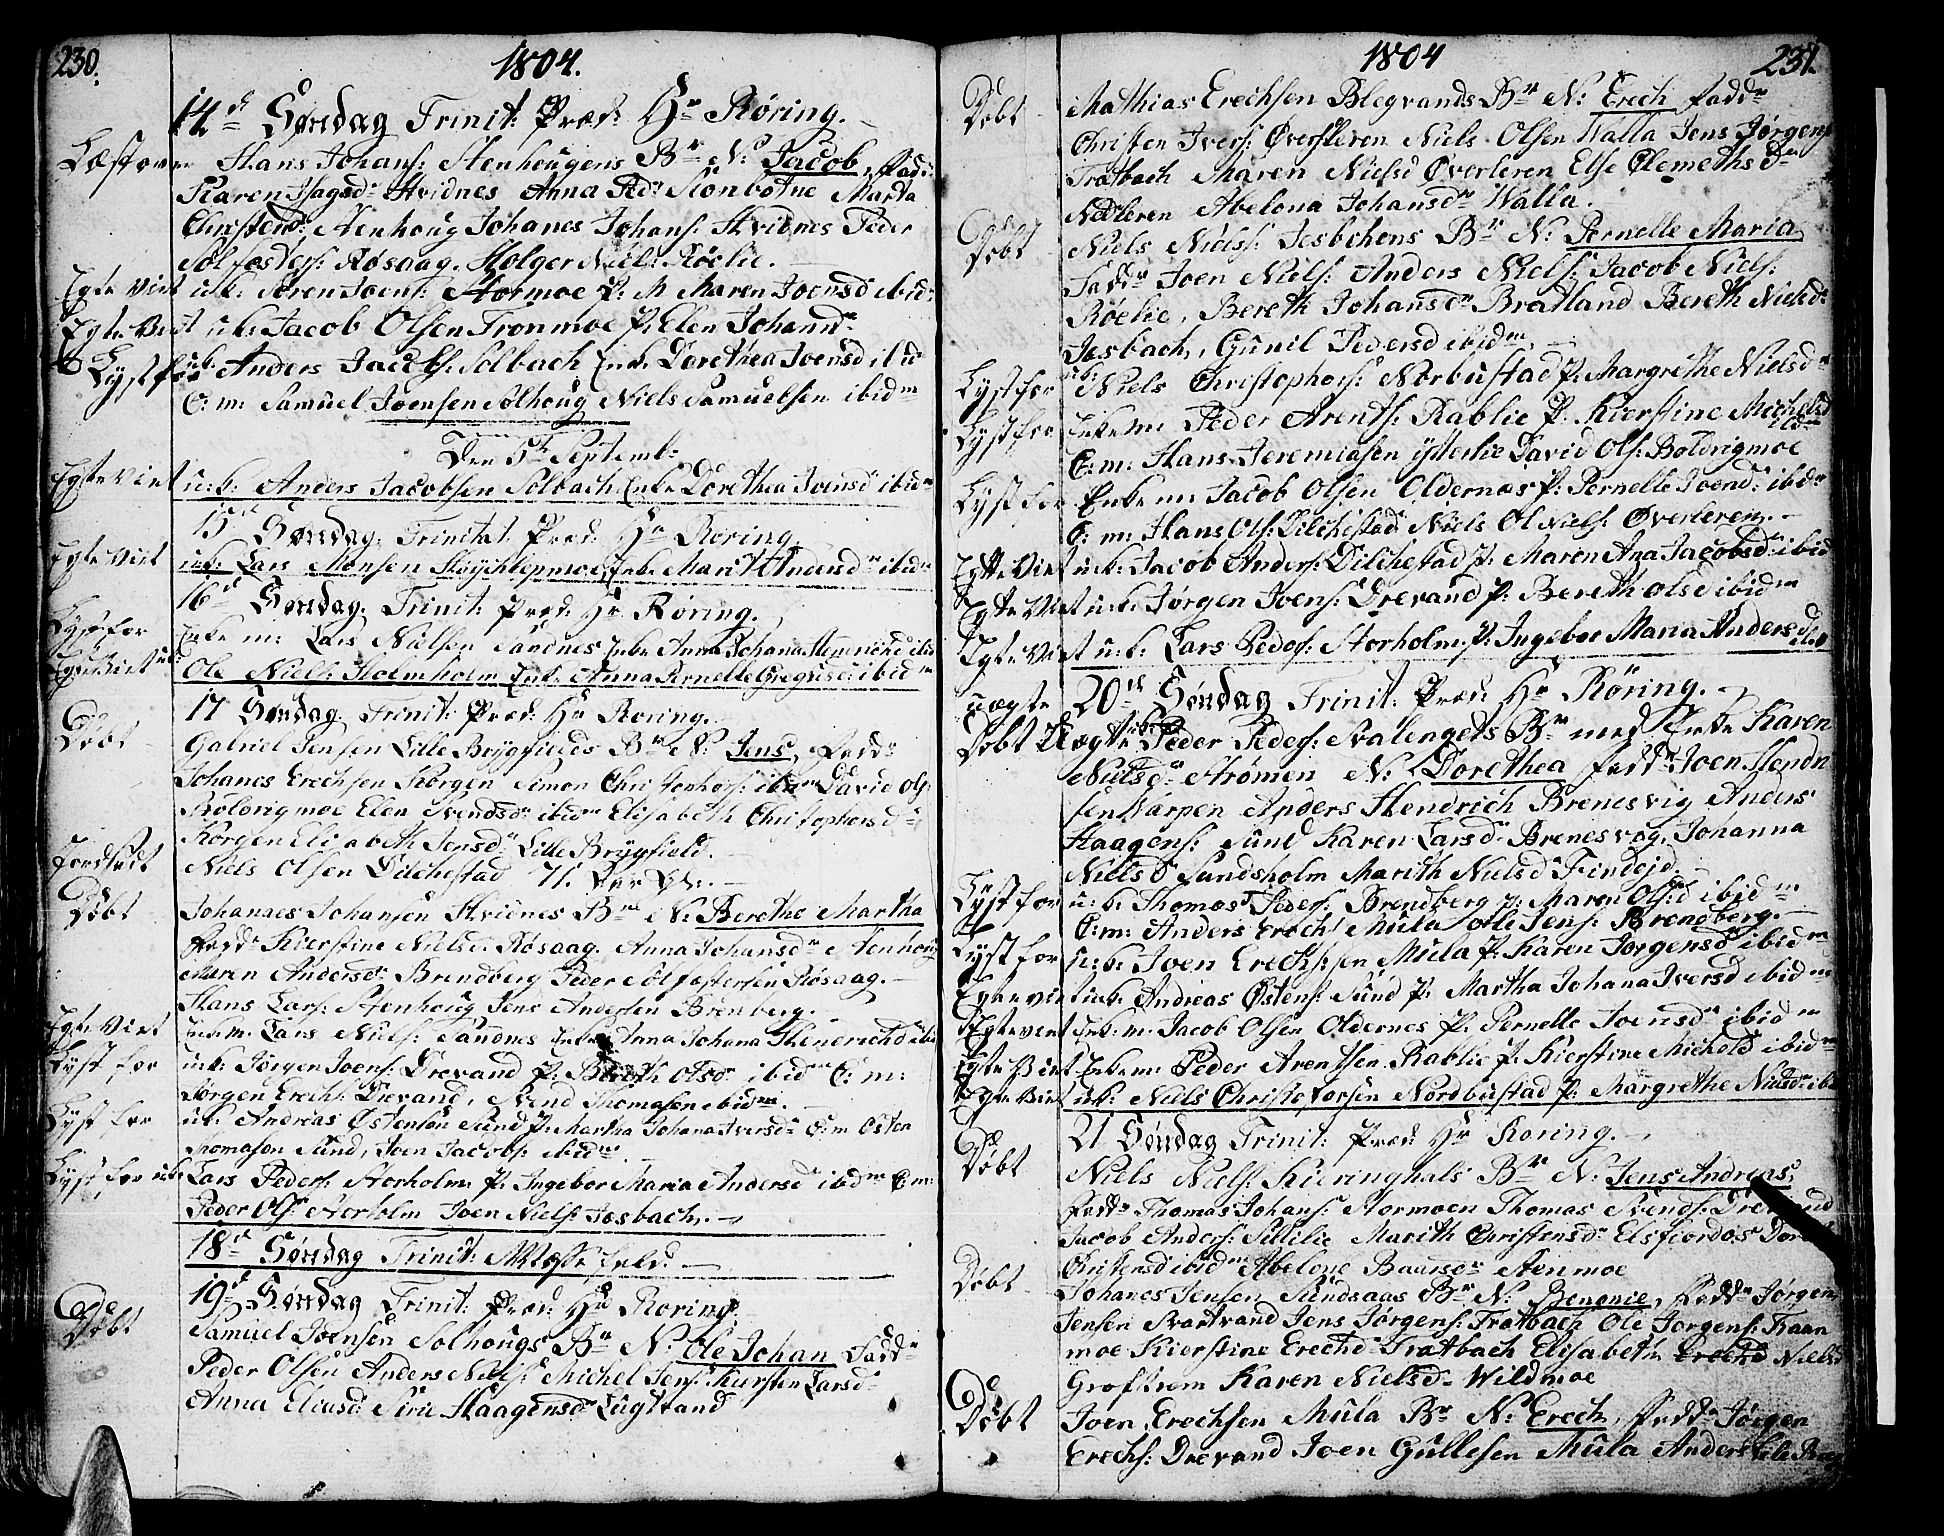 230.
1804.
14d Søndag Trinit: Præd: Hr Røring.
Hans Johans: Stenhougens Br N: Jacob, Fadd:
Karen Isagsdr Hvidnes Anna Pedr Konbotne Marta
Christensd: Stenhoug Johanes Johans: Hvidnes Peder
Solfesters: Røsaag. Holger Niels: Røelie.
Egte Viet u.k. Søren Joens: Stormoe P: M Maren Joensd ibid:
Egte Viet u.k. Jacob Olsen Tronmoe P. Elen Johansdr
Lyst for u.k. Anders Jacobs: Solbach Enke Dorethea Joensd ibid
C: m: Samuel Joensen Solhoug Niels Samuelsen ibidm
Den 5te Septemb:
Egte Viet u.k. Anders Jacobsen Solbach Enke Dorethea Joensd ibidm
15d Søndag Trinitat: Præd: Hr Røring
Egte Viet u.k. Lars Monsen Enke Marit Andersdr ibidm
16d Søndag. Trinit: Præd: Hr Røring.
Lyst for Enke m: Lars Nielsen Sandnes Enke Anna Johana Henrichd ibid
Egte Viet u.k. Ole Niels: Holmholm Enke Anna Pernelle Gregusd: ibidm
17 Søndag Trinit: Præd: Hr Roring.
Døbt Gabriel Jensen Lille Brygfields Br N: Jens, Fadd:
Johanes Erechsen Korgen Simon Christophors: ibm David Ols
Boldrigmoe Elen Svendsdr ibidm Elisabeth Christophersdr
Korgen Elisabeth Jensdr Lille Brygfield.
Jordfæst Niels Olsen Dilchestad 71.
Døbt Johanes Johansen Hvidnes Br N: Berethe Martha
Fadd: Kierstine Nielsd: Røsaag. Anna Johansdr Stenhoug
Maren Andersdr Brendberg Peder Solfestersen Røsaag.
Hans Lars: Stenhoug Jens Andersen Brenberg.
Egte Viet Enke m. Lars Niels: Sandnes Enke Anna Johana Henrichd ibid
Lyst for u.k. Jørgen Joens: Drevand P. Bereth Olsdr ibidm C: m:
Jørgen Erechs: Drevand, Svend Thomasen ibidm.
Lyst for u.k. Andreas Østensøn Sund P. Martha Johana Iversdr C: m Østen
Thomasøn Sund, Joen Jacobs: ibidm
Lyst for u.k. Lars Peders: Storholm P. Ingebor Maria Andersd ibidm C: m:
Peder Ols: Storholm Joen Niels: Josbach.
18d Søndag Trinit: Messe fald.
19d Søndag Trinit: Præd: Hr Roring.
Døbt Samuel Joensen Solhougs Br N: Ole Johan Fadd:
Peder Olsen Anders Niels: Michel Jens: Kiersten Larsdr
Anna Eliasd: Siri Haagensdr Lugtrand
1804
231.
Døbt Mathias Erechsen Blegvands Br N: Erech Fadd:
Christen Ivers: Øverleren Niels Olsen Walla Jens Jørgens:
Tratbach Maren Nielsd Øverleren Else Clemethsdr
Nedleren Abelona Johansdr Walla.
Døbt Niels Niels: Josbchens Br N: Pernelle Maria
Fadd: Joen Niels: Anders Niels: Jacob Niels:
Røelie, Bereth Johansdr Bratland Bereth Nielsdr
Josbach, Gunil Pedersd ibidm.
Lyst for u.k. Niels Christophers: Norbustad P. Margrethe Nielsdr
Lyst for Enkem: Peder Arents: Rablie P. Kierstine Michelsd ibidm
C: m: Hans Jeremiasen Ysterlie David Ols: Boldrigmoe
Lyst for Enke m: Jacob Olsen Oldernæs P. Pernelle Joensd: ibidm
C: m: Hans Ols: Dilchestad Niels Ol Niels: Øverleren.
Egte Viet u.k. Jacob Anders: Dilchestad P. Maren Ana Jacobsd: ibid
Egte Viet u.k. Jørgen Joens: Drevand P. Bereth Olsd ibidm
Egte Viet u.k. Lars Peders: Storholm P. Ingebor Maria Andersd ibid
20d Søndag Trinit: Præd: Hr Røring.
uægte Døbt Uægte Peder Peders: Stalengets Br med Enke Karen
Nielsdr Strømen N. Dorethea Fadd: Joen Hendr
sen Varpen Anders Hendrich Brenesvig Anders
Haagens: Sund Karen Larsdr Brenesvog. Johanna
Nielsd Sundsholm Marith Nielsd Findejd.
Lyst for u.k. Thomas Peders: Brendberg P. Maren Olsd ibidm
C: m: Anders Erechs Mula Ole Jens: Brendberg.
Lyst for u.k. Joen Erechs:sen Mula P. Karen Jørgensd ibidm
Egte viet u.k. Andreas Østens: Sund P. Martha Johana Iversd ibidm
Egte viet Enk: m. Jacob Olsen Oldernes P. Pernelle Joensd ibidm
Egte Viet Enke m: Peder Arentsen Rablie P. Kierstine Michelsd ibidm
Egte Viet u.k. Niels Christophersen Nordbustad P. Margrethe Nielsd: ibid
21 Søndag Trinit: Præd: Hr Roring.
Døbt Niels Niels: Kieringhals Br N: Jens Andreas,
Fadd: Thomas Johans: Stormoen Thomas Svends: Drevand
Jacob Anders: Sillilie Marith Christensdr Elsfiordos
Christensd ibidm Abelone Baarsdr Stenmoe
Døbt Johanes Jensen Sundsaas Br N: Benonie, Fadd: Jørgen
Jensen Svartvand Jens Jørgens: Tratbach Ole Jørgens: Traan
moe Kierstine Erechd Tratbach Elisabeth Erechd Nielsd
Grofstrem Karen Nielsd Wildmoe
Døbt Joen Erechsen Mula Br N: Erech, Fadd: Jørgen
Erechs: Drevand Joen Gullesen Mula Anders